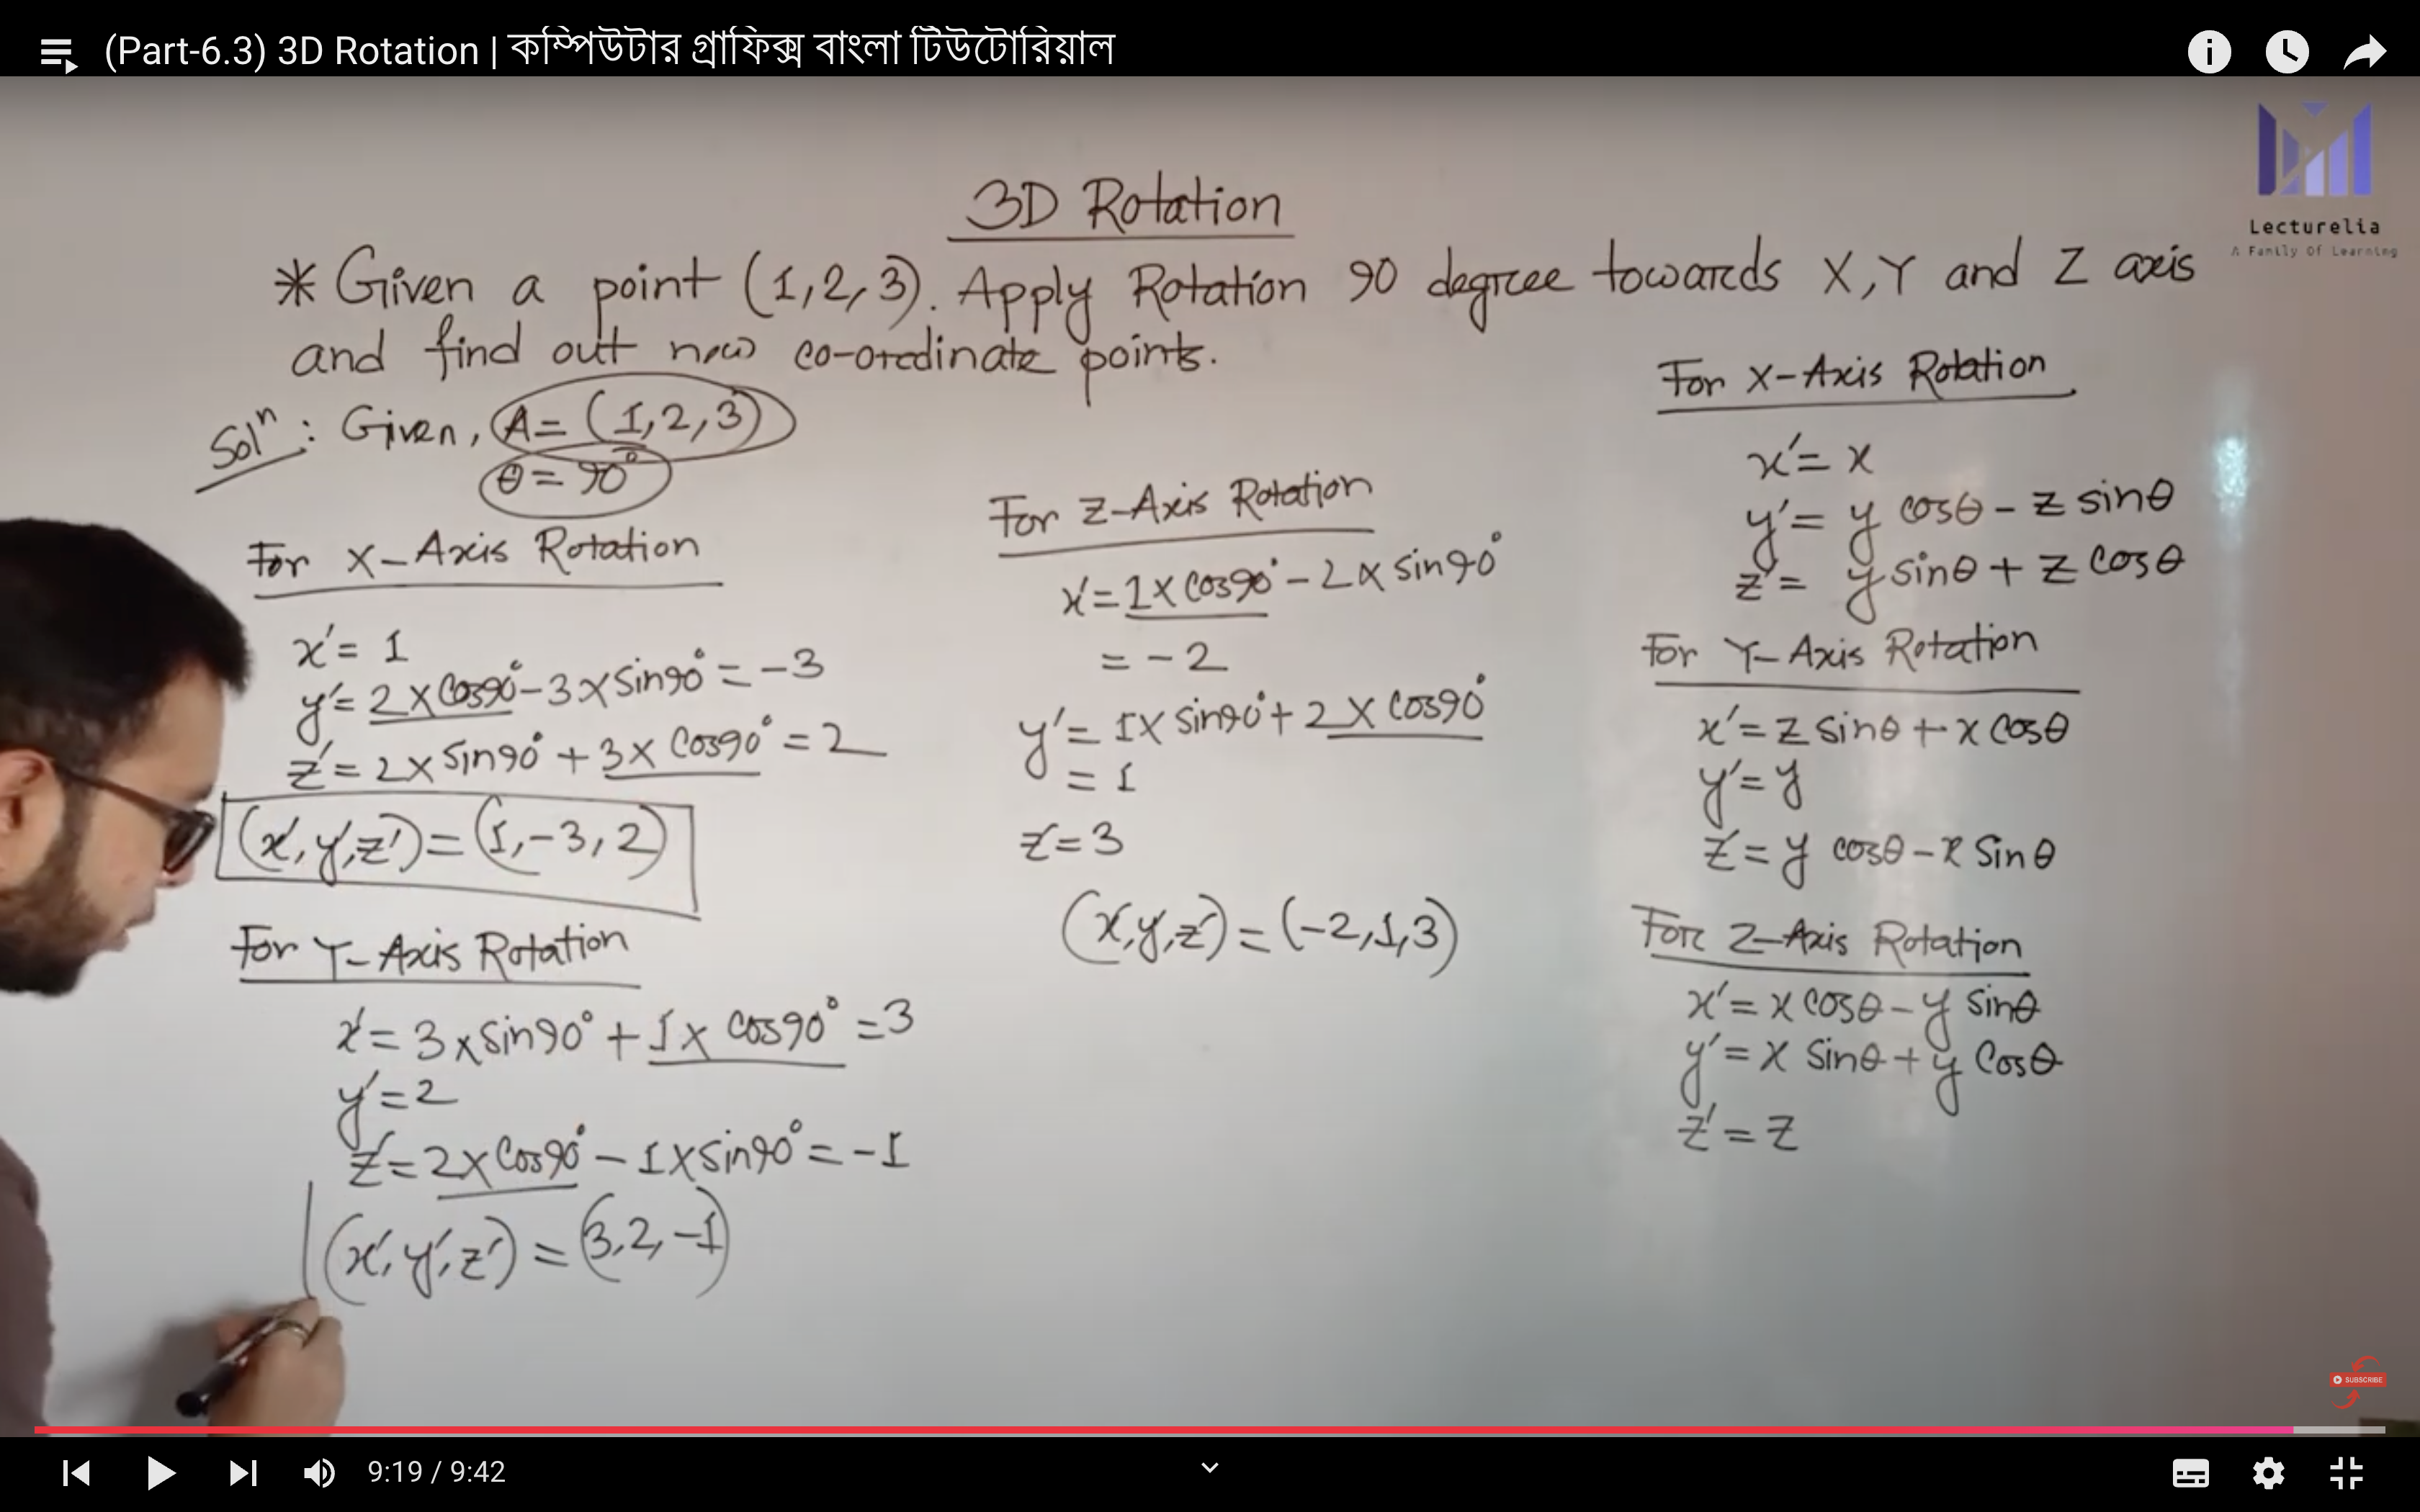 (Part-6.3) 3D Rotation | কম্পিউটার গ্রাফিক্স বাংলা টিউটোরিয়াল
Lecturelia
A Family Of Learning
3D Rotation
* Given a point (1,2,3). Apply Rotation 90 degree towards X,Y and Z axis
and find out new co-ordinate points.
Solⁿ: Given, A = (1,2,3)
θ = 90°
For X-Axis Rotation
x' = 1
y' = 2 x Cos90° - 3 x Sin90° = -3
z' = 2 x Sin90° + 3 x Cos90° = 2
(x', y', z') = (1, -3, 2)
For Y-Axis Rotation
x' = 3 x Sin90° + 1 x Cos90° = 3
y' = 2
z' = 2 x Cos90° - 1 x Sin90° = -1
(x', y', z') = (3, 2, -1)
For Z-Axis Rotation
x' = 1 x Cos90° - 2 x Sin90°
= -2
y' = 1 x Sin90° + 2 x Cos90°
= 1
z' = 3
(x', y', z') = (-2, 1, 3)
For X-Axis Rotation
x' = x
y' = y cosθ - z sinθ
z' = y sinθ + z cosθ
For Y-Axis Rotation
x' = z sinθ + x cosθ
y' = y
z' = y cosθ - x sinθ
For Z-Axis Rotation
x' = x cosθ - y sinθ
y' = x sinθ + y cosθ
z' = z
SUBSCRIBE
9:19 / 9:42